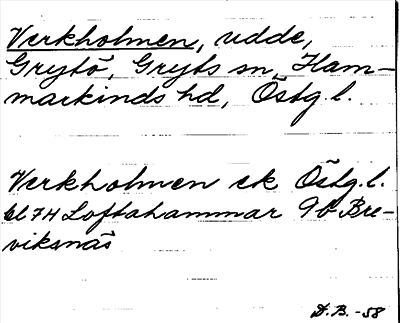 Verkholmen, udde,
Grytö, Gryts sn, Ham-
markinds hd, Östg. l.
Verkholmen ek Östg. l.
bl 74 Loftahammar 9b Bre-
viksnäs
D. B. -58